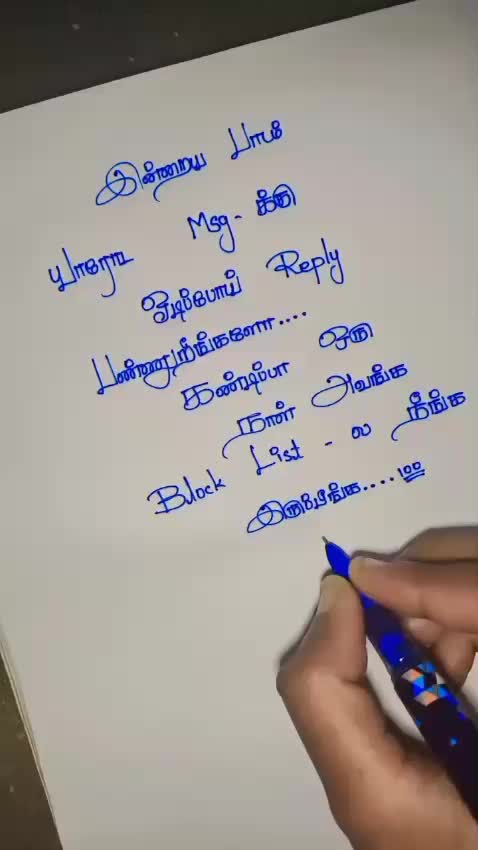 இன்றைய பாடம்
யாரோட Msg - க்கு
ஓடிப்போய் Reply
பண்ணுறீங்களோ....
கண்டிப்பா ஒரு
நாள் அவங்க
Block List - ல நீங்க
இருப்பீங்க....